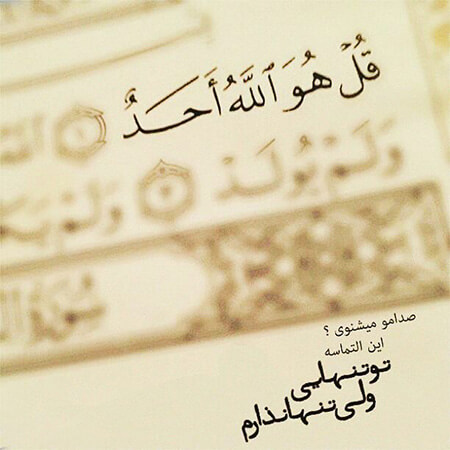 قُلْ هُوَ ٱللَّهُ أَحَدٌ ١
وَلَمْ يُولَدْ ٣ وَلَمْ
صدامو میشنوی ؟
این التماسه
تو تنهایی
ولی تنها نذارم